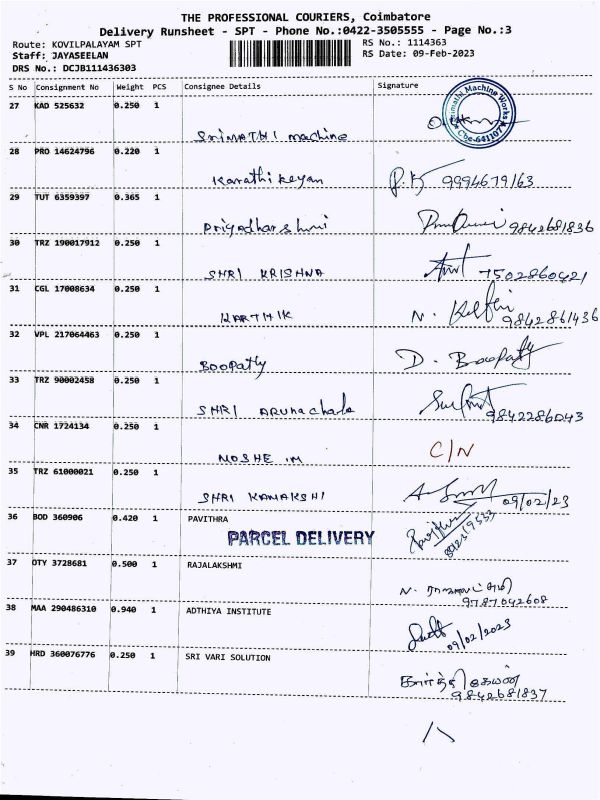 THE PROFESSIONAL COURIERS, Coimbatore
Delivery Runsheet - SPT - Phone No.:0422-3505555 - Page No.:3
Route: KOVILPALAYAM SPT RS No.: 1114363
Staff: JAYASEELAN RS Date: 09-Feb-2023
DRS No.: DCJB111436303
S No Consignment No Weight PCS Consignee Details Signature
27 KAD 525632 0.250 1
Srimathi Machine Works
Cbe-641107
SRIMATHI machine
28 PRO 14624796 0.220 1
Karathikeyan P.K 9994679163
29 TUT 6359397 0.365 1
Priyadharshni 9842681836
30 TRZ 190017912 0.250 1
SHRI KRISHNA 7502860421
31 CGL 17008634 0.250 1
KARTHIK N. 9842861436
32 VPL 217064463 0.250 1
Boopathy D. Boopathy
33 TRZ 90002458 0.250 1
SHRI Arunachala 9842286043
34 CNR 1724134 0.250 1
MOSHE .M C/N
35 TRZ 61000021 0.250 1
SHRI KAMAKSHI 09/02/23
36 BOD 360906 0.420 1 PAVITHRA
PARCEL DELIVERY
37 OTY 3728681 0.500 1 RAJALAKSHMI
N. ராஜலட்சுமி
9787042608
38 MAA 290486310 0.940 1 ADTHIYA INSTITUTE
09/02/2023
39 HRD 360076776 0.250 1 SRI VARI SOLUTION
கார்த்திகேயன்
9842681837